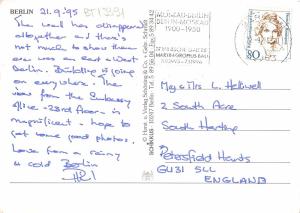 BERLIN 21.9.'95 BT1391
The wall has disappeared
altogether and there's
not much to show there
ever was an East & West
Berlin. Building is going
on everywhere. The
view from the Embassy
Office - 23rd floor is
magnificent - hope to
get some good photos.
Love from a rainy
& cold Berlin
MOSKAU-BERLIN
BERLIN-MOSKAU
1900-1950
BERLINISCHE GALERIE
MARTIN-GROPIUS-BAU
80
Mr & Mrs L. Helliwell
South Harting
Petersfield Hants
GU31 5LL
ENGLAND